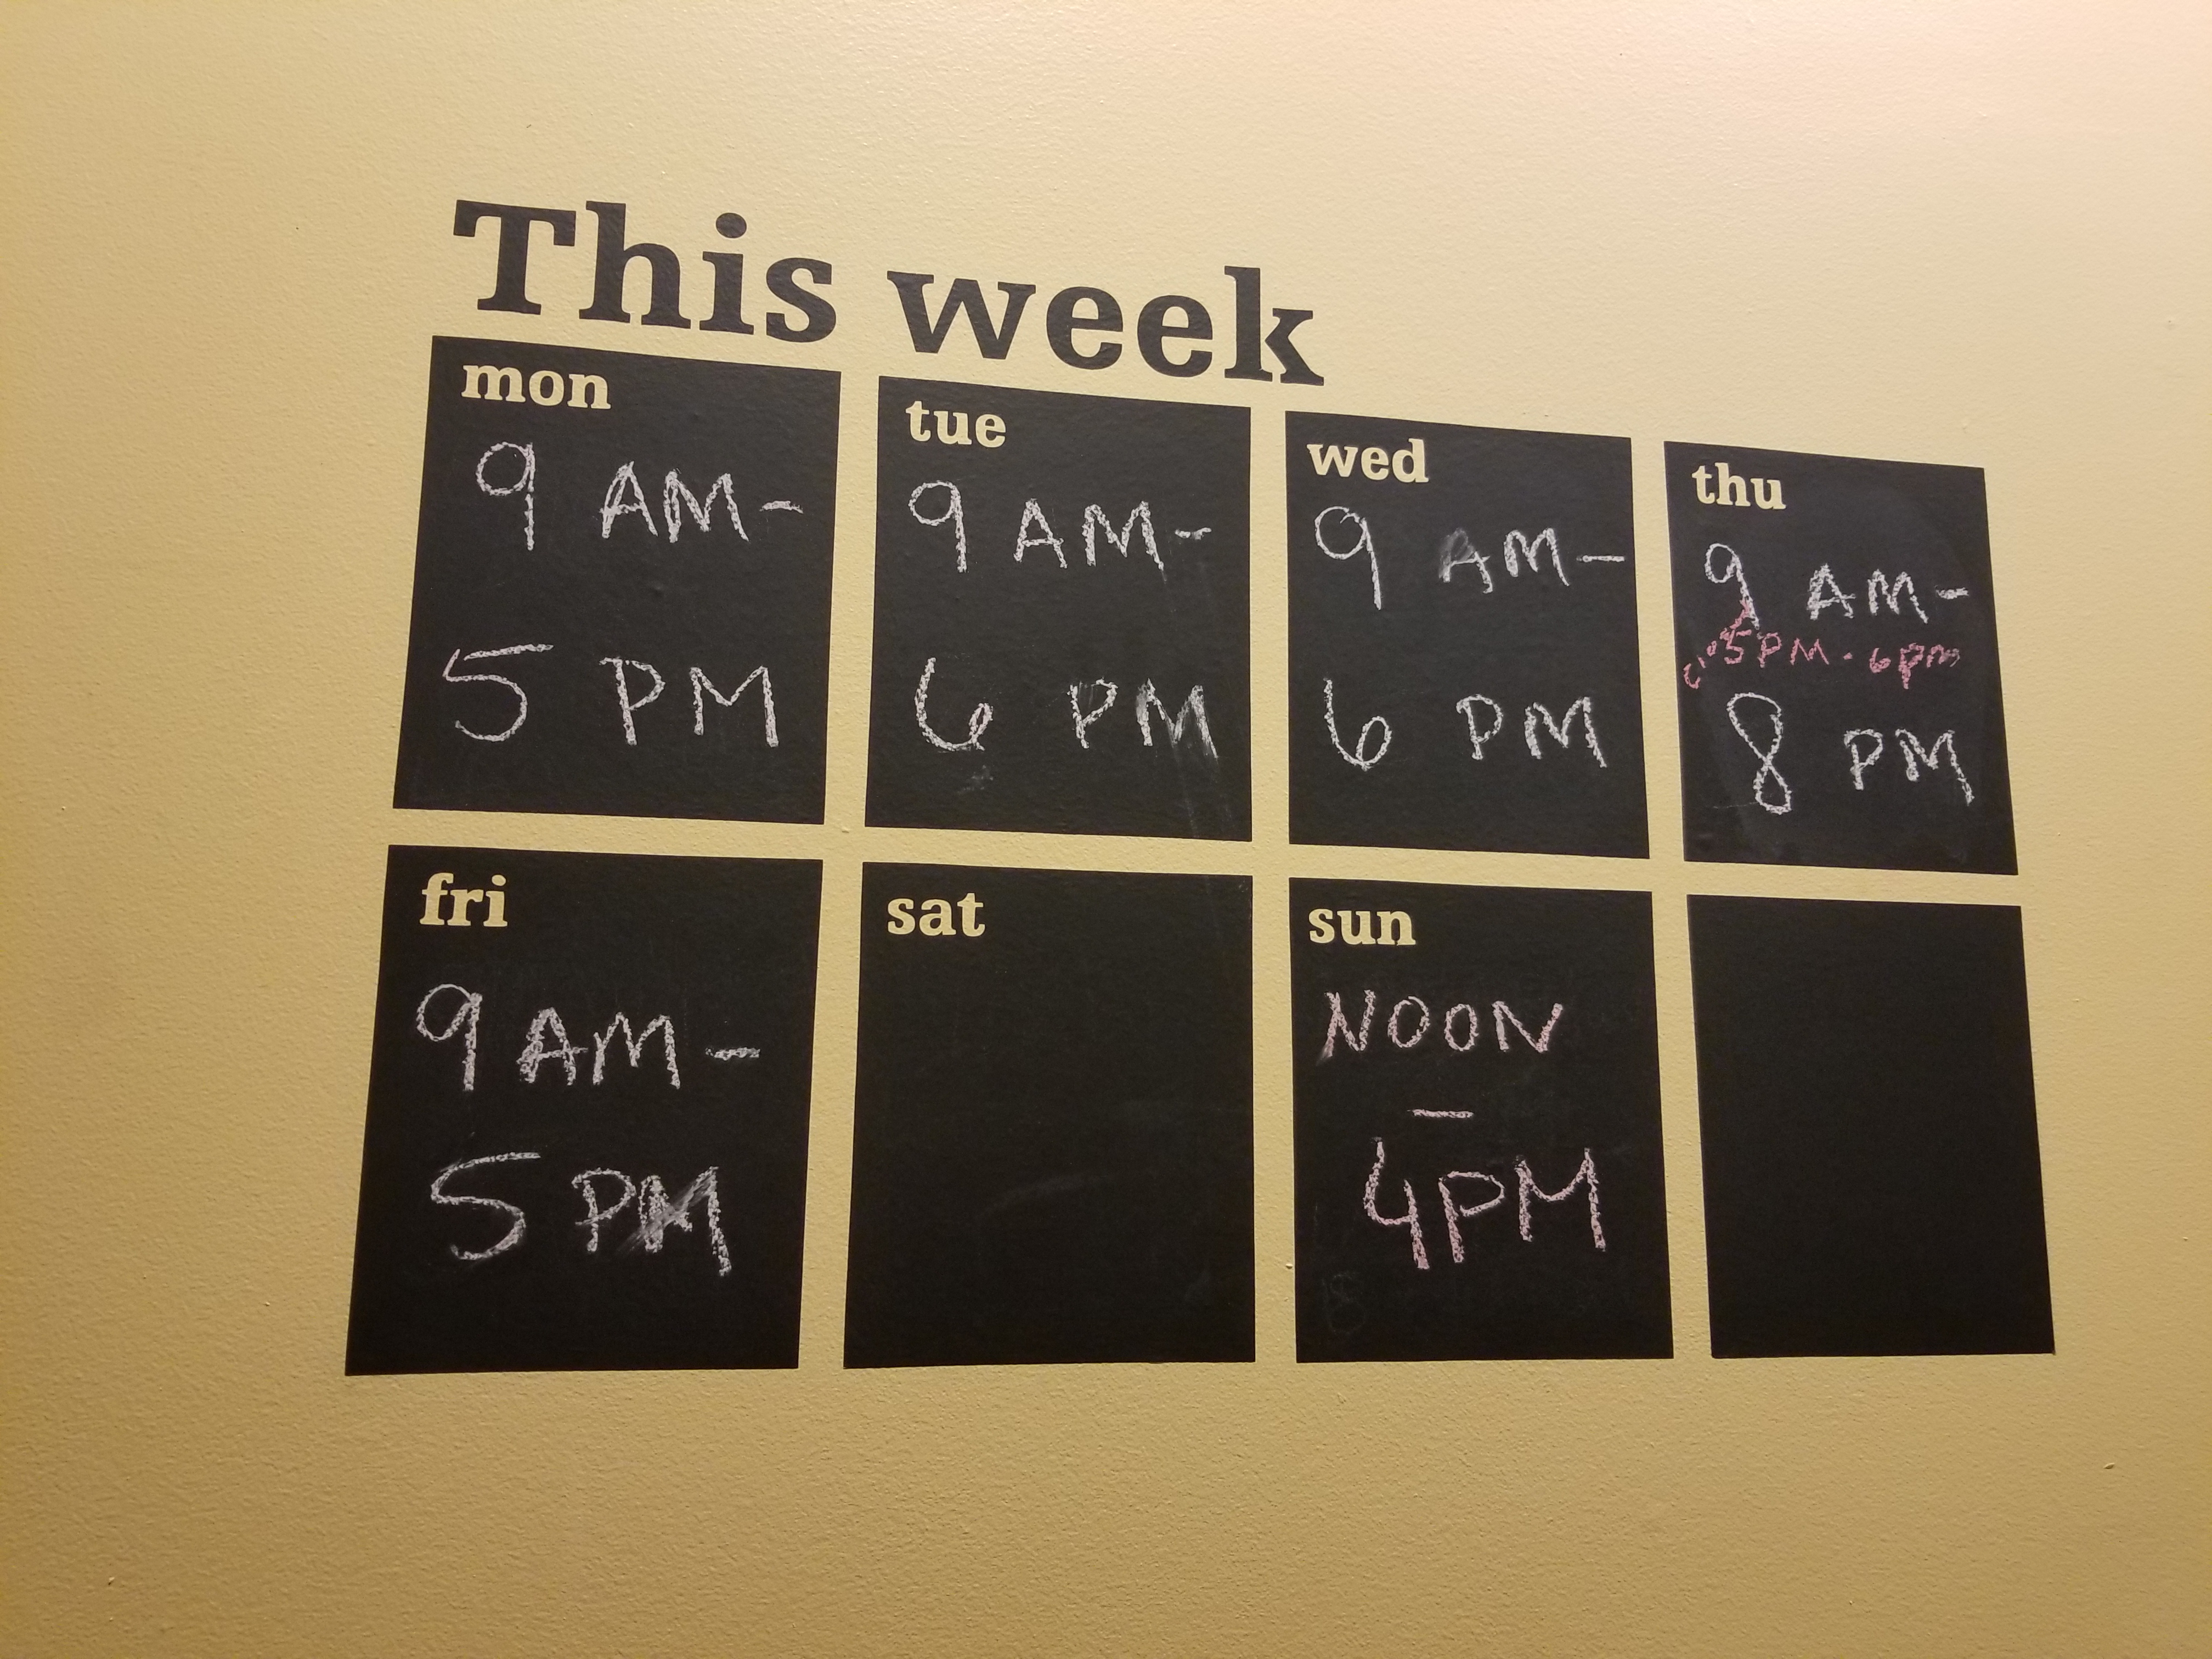 This week
mon
9 AM-
5 PM
tue
9 AM-
6 PM
wed
9 AM-
6 PM
thu
9 AM-
5PM-6pm
8 PM
fri
9 AM-
5 PM
sat
sun
NOON
-
4PM